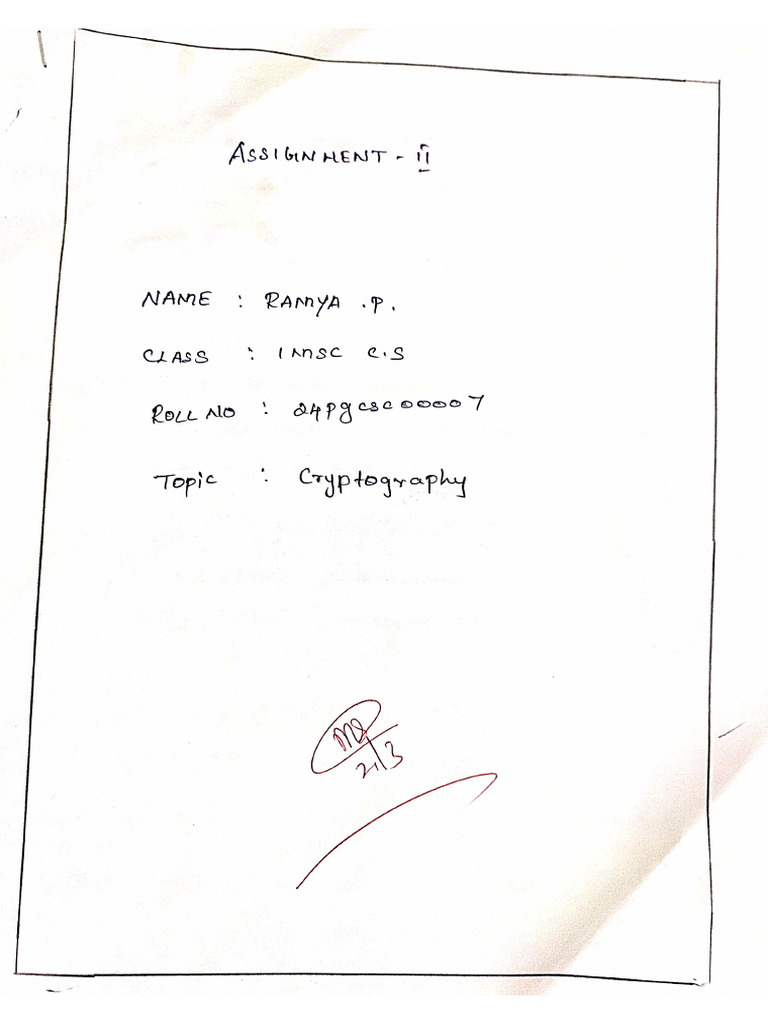 ASSIGNMENT - II
NAME : RAMYA .P.
CLASS : I MSC C.S
ROLL NO : 24pgcsc00007
Topic : Cryptography
21/3